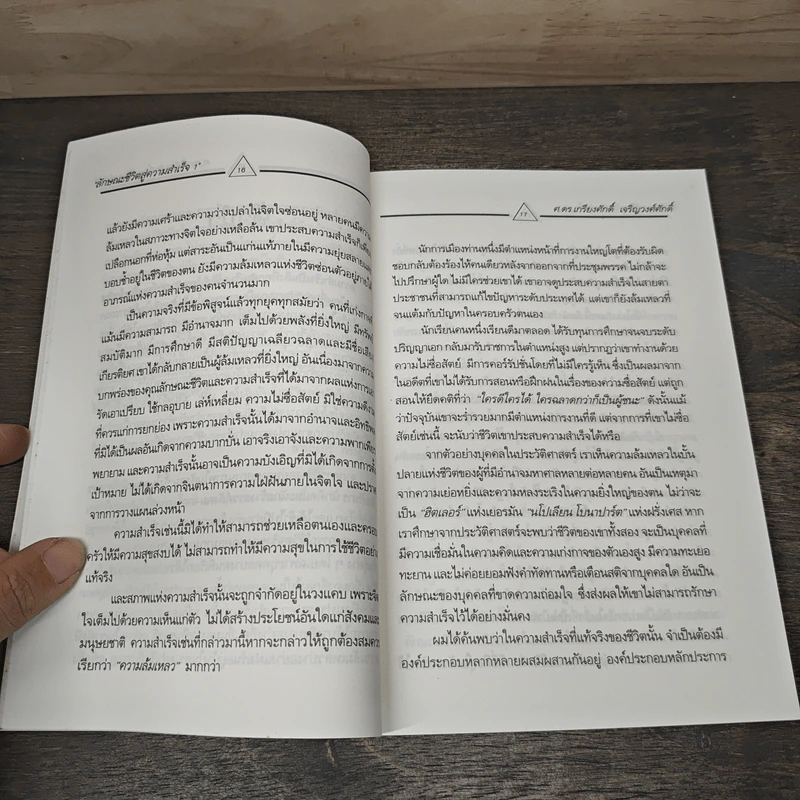 "ลักษณะชีวิตสู่ความสำเร็จ 1"
16
แล้วยังมีความเศร้าและความว่างเปล่าในจิตใจซ่อนอยู่ หลายคนมีความ
ล้มเหลวในสภาวะทางจิตใจอย่างเหลือล้น เขาประสบความสำเร็จก็เพียง
เปลือกนอกที่ห่อหุ้ม แต่สาระอันเป็นแก่นแท้ภายในมีความยุ่ยสลายและ
บอบช้ำอยู่ในชีวิตของตน ยังมีความล้มเหลวแห่งชีวิตซ่อนตัวอยู่ภายใต้
อาภรณ์แห่งความสำเร็จของคนจำนวนมาก
เป็นความจริงที่มีข้อพิสูจน์แล้วทุกยุคทุกสมัยว่า คนที่เก่งกาจ
แม้นมีความสามารถ มีอำนาจมาก เต็มไปด้วยพลังที่ยิ่งใหญ่ มีทรัพย์
สมบัติมาก มีการศึกษาดี มีสติปัญญาเฉลียวฉลาดและมีชื่อเสียง
เกียรติยศ เขาได้กลับกลายเป็นผู้ล้มเหลวที่ยิ่งใหญ่ อันเนื่องมาจากความ
บกพร่องของคุณลักษณะชีวิตและความสำเร็จที่ได้มาจากผลแห่งการเอา
รัดเอาเปรียบ ใช้กลอุบาย เล่ห์เหลี่ยม ความไม่ซื่อสัตย์ มิใช่ความดีงาม
ที่ควรแก่การยกย่อง เพราะความสำเร็จนั้นได้มาจากอำนาจและอิทธิพล
ที่มิได้เป็นผลอันเกิดจากความบากบั่น เอาจริงเอาจังและความพากเพียร
พยายาม และความสำเร็จนั้นอาจเป็นความบังเอิญที่มิได้เกิดจากการตั้ง
เป้าหมาย ไม่ได้เกิดจากจินตนาการความใฝ่ฝันภายในจิตใจ และปราศ
จากการวางแผนล่วงหน้า
ความสำเร็จเช่นนี้มิได้ทำให้สามารถช่วยเหลือตนเองและครอบ
ครัวให้มีความสุขสงบได้ ไม่สามารถทำให้มีความสุขในการใช้ชีวิตอย่าง
แท้จริง
และสภาพแห่งความสำเร็จนั้นจะถูกจำกัดอยู่ในวงแคบ เพราะจิต
ใจเต็มไปด้วยความเห็นแก่ตัว ไม่ได้สร้างประโยชน์อันใดแก่สังคมและ
มนุษยชาติ ความสำเร็จเช่นที่กล่าวมานี้หากจะกล่าวให้ถูกต้องสมควร
เรียกว่า "ความล้มเหลว" มากกว่า
17
ศ.ดร.เกรียงศักดิ์ เจริญวงศ์ศักดิ์
นักการเมืองท่านหนึ่งมีตำแหน่งหน้าที่การงานใหญ่โตที่ต้องรับผิด
ชอบกลับต้องร้องไห้คนเดียวหลังจากออกจากที่ประชุมพรรค ไม่กล้าจะ
ไปปรึกษาผู้ใด ไม่มีใครช่วยเขาได้ เขาอาจดูประสบความสำเร็จในสายตา
ประชาชนที่สามารถแก้ไขปัญหาระดับประเทศได้ แต่เขาก็ยังล้มเหลวที่
จนแต้มกับปัญหาในครอบครัวตนเอง
นักเรียนคนหนึ่งเรียนดีมาตลอด ได้รับทุนการศึกษาจนจบระดับ
ปริญญาเอก กลับมารับราชการในตำแหน่งสูง แต่ปรากฏว่าเขาทำงานด้วย
ความไม่ซื่อสัตย์ มีการคอร์รัปชั่นโดยที่ไม่มีใครรู้เห็น ซึ่งเป็นผลมาจาก
ในอดีตที่เขาไม่ได้รับการสอนหรือฝึกฝนในเรื่องของความซื่อสัตย์ แต่ถูก
สอนให้ยึดคติที่ว่า "ใครดีใครได้ ใครฉลาดกว่าก็เป็นผู้ชนะ" ดังนั้นแม้
ว่าปัจจุบันเขาจะร่ำรวยมากมีตำแหน่งการงานที่ดี แต่จากการที่เขาไม่ซื่อ
สัตย์เช่นนี้ จะนับว่าชีวิตเขาประสบความสำเร็จได้หรือ
จากตัวอย่างบุคคลในประวัติศาสตร์ เราเห็นความล้มเหลวในบั้น
ปลายแห่งชีวิตของผู้ที่มีอำนาจมหาศาลหลายต่อหลายคน อันเป็นเหตุมา
จากความเย่อหยิ่งและความหลงระเริงในความยิ่งใหญ่ของตน ไม่ว่าจะ
เป็น "ฮิตเลอร์" แห่งเยอรมัน "นโปเลียน โบนาปาร์ต" แห่งฝรั่งเศส หาก
เราศึกษาจากประวัติศาสตร์จะพบว่าชีวิตของเขาทั้งสอง จะเป็นบุคคลที่
มีความเชื่อมั่นในความคิดและความเก่งกาจของตัวเองสูง มีความทะเยอ
ทะยาน และไม่ค่อยยอมฟังคำทัดทานหรือเตือนสติจากบุคคลใด อันเป็น
ลักษณะของบุคคลที่ขาดความถ่อมใจ ซึ่งส่งผลให้เขาไม่สามารถรักษา
ความสำเร็จไว้ได้อย่างมั่นคง
ผมได้ค้นพบว่าในความสำเร็จที่แท้จริงของชีวิตนั้น จำเป็นต้องมี
องค์ประกอบหลากหลายผสมผสานกันอยู่ องค์ประกอบหลักประการ